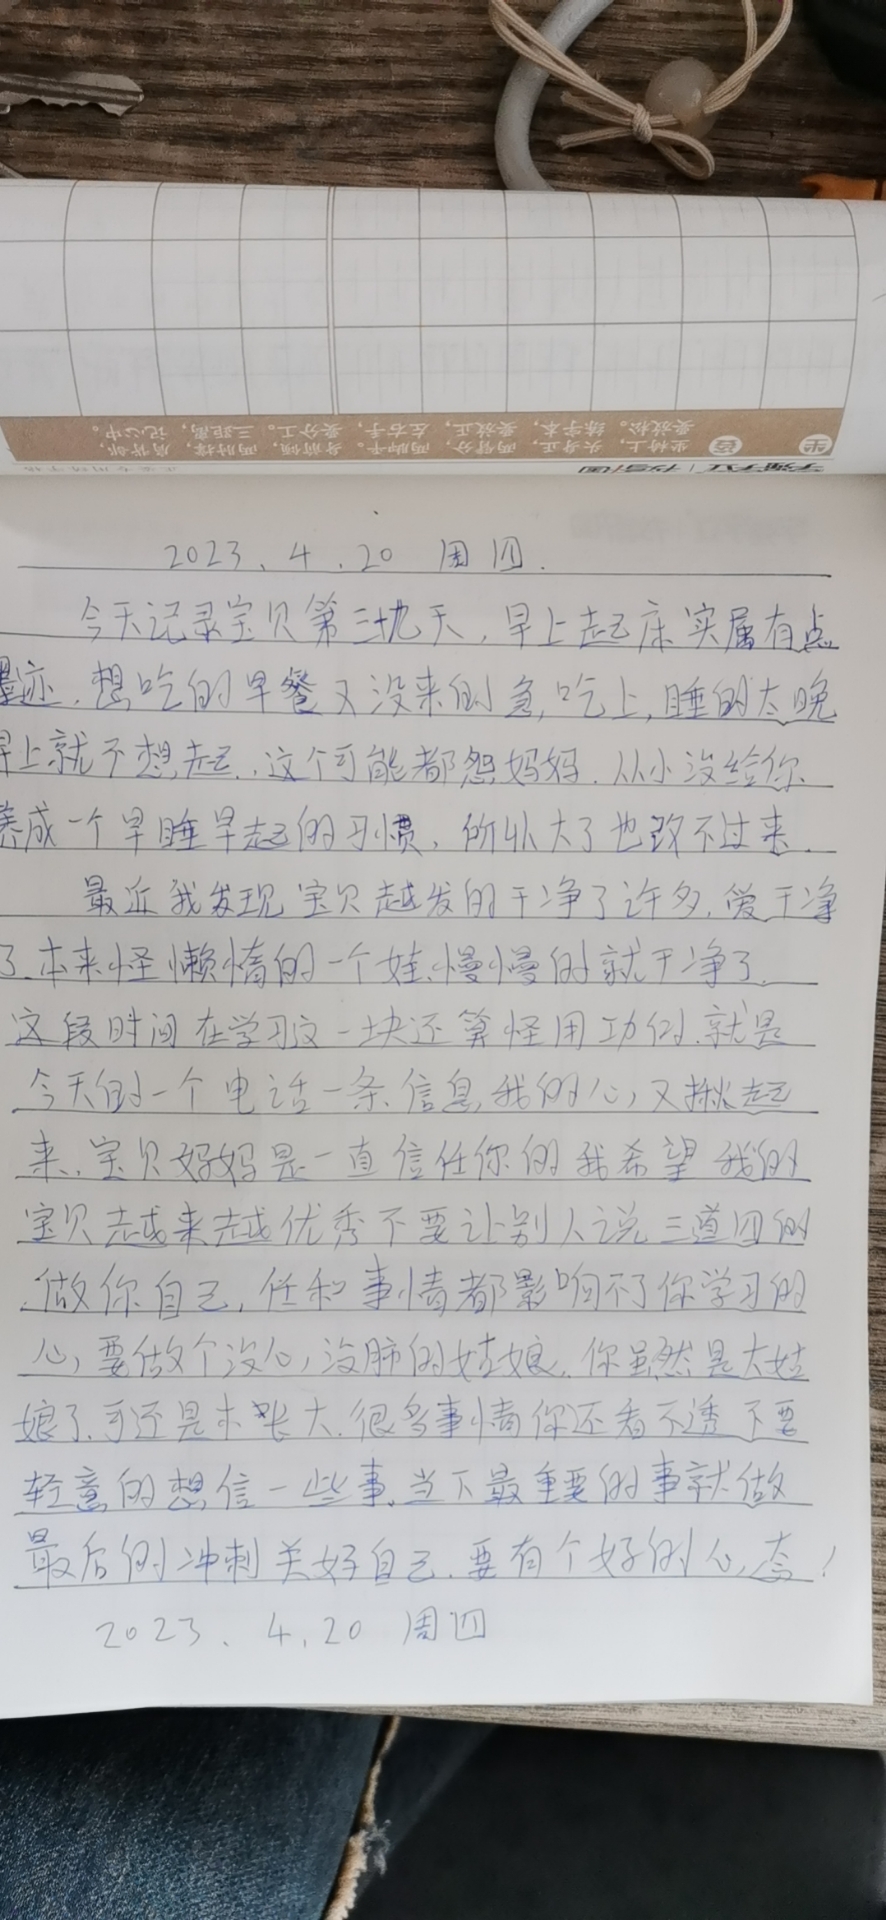 坐 姿
坐椅上，头身正，两臂分，两脚平。身前倾，两肘撑，肩背部，
要放松。练字本，要放正，左右手，要分工。三距离，记心中。
2023、4.20 周四.
今天记录宝贝第三十九天，早上起床实属有点
墨迹，想吃的早餐又没来的急，吃上，睡的太晚
早上就不想起，这个可能都怨妈妈．从小没给你
养成一个早睡早起的习惯，所以大了也改不过来．
最近我发现宝贝越发的干净了许多．爱干净
了．本来怪懒惰的一个娃，慢慢的就干净了．
这段时间在学习这一块还算怪用功的．就是
今天的一个电话一条信息，我的心又揪起
来．宝贝妈妈是一直信任你的我希望我的
宝贝越来越优秀不要让别人说三道四的
．做你自己，任和事情都影响不了你学习的
心，要做个没心没肺的姑娘．你虽然是大姑
娘了．可还是木长大．很多事情你还看不透不要
轻意的想信一些事，当下最重要的事就做
最后的冲刺关好自己．要有个好的心态！
2023、4.20 周四